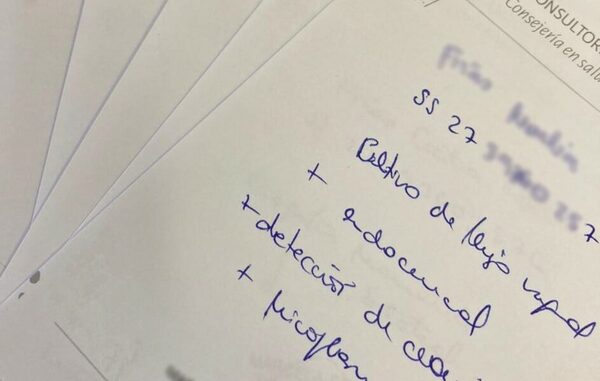 CONSULTOR
Consejería en salu
SS 27 7
Cultivo de flujo vaginal
+ endocervical
+ detección de
+ Micoplasm